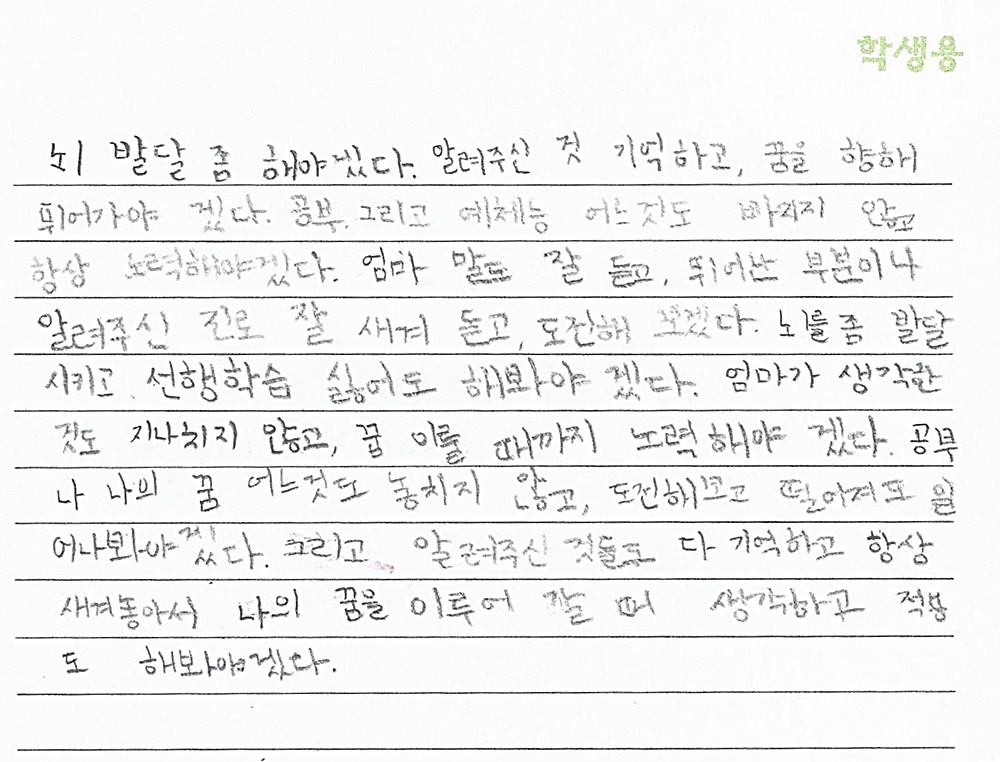 학생용
뇌 발달 좀 해야겠다. 알려주신 것 기억하고, 꿈을 향해
뛰어가야 겠다. 공부. 그리고 예체능 어느것도 빠지지 않고
항상 노력해야겠다. 엄마 말도 잘 듣고, 뛰어난 부분이나
알려주신 진로 잘 새겨 듣고, 도전해 보겠다. 뇌를 좀 발달
시키고. 선행학습 싫어도 해봐야 겠다. 엄마가 생각한
것도 지나치지 않고, 꿈 이룰 때까지 노력해야 겠다. 공부
나 나의 꿈 어느것도 놓치지 않고, 도전해보고 떨어져도 일
어나봐야겠다. 그리고 알려주신 것들도 다 기억하고 항상
새겨놓아서 나의 꿈을 이루어 갈 때 생각하고 적용
도 해봐야겠다.